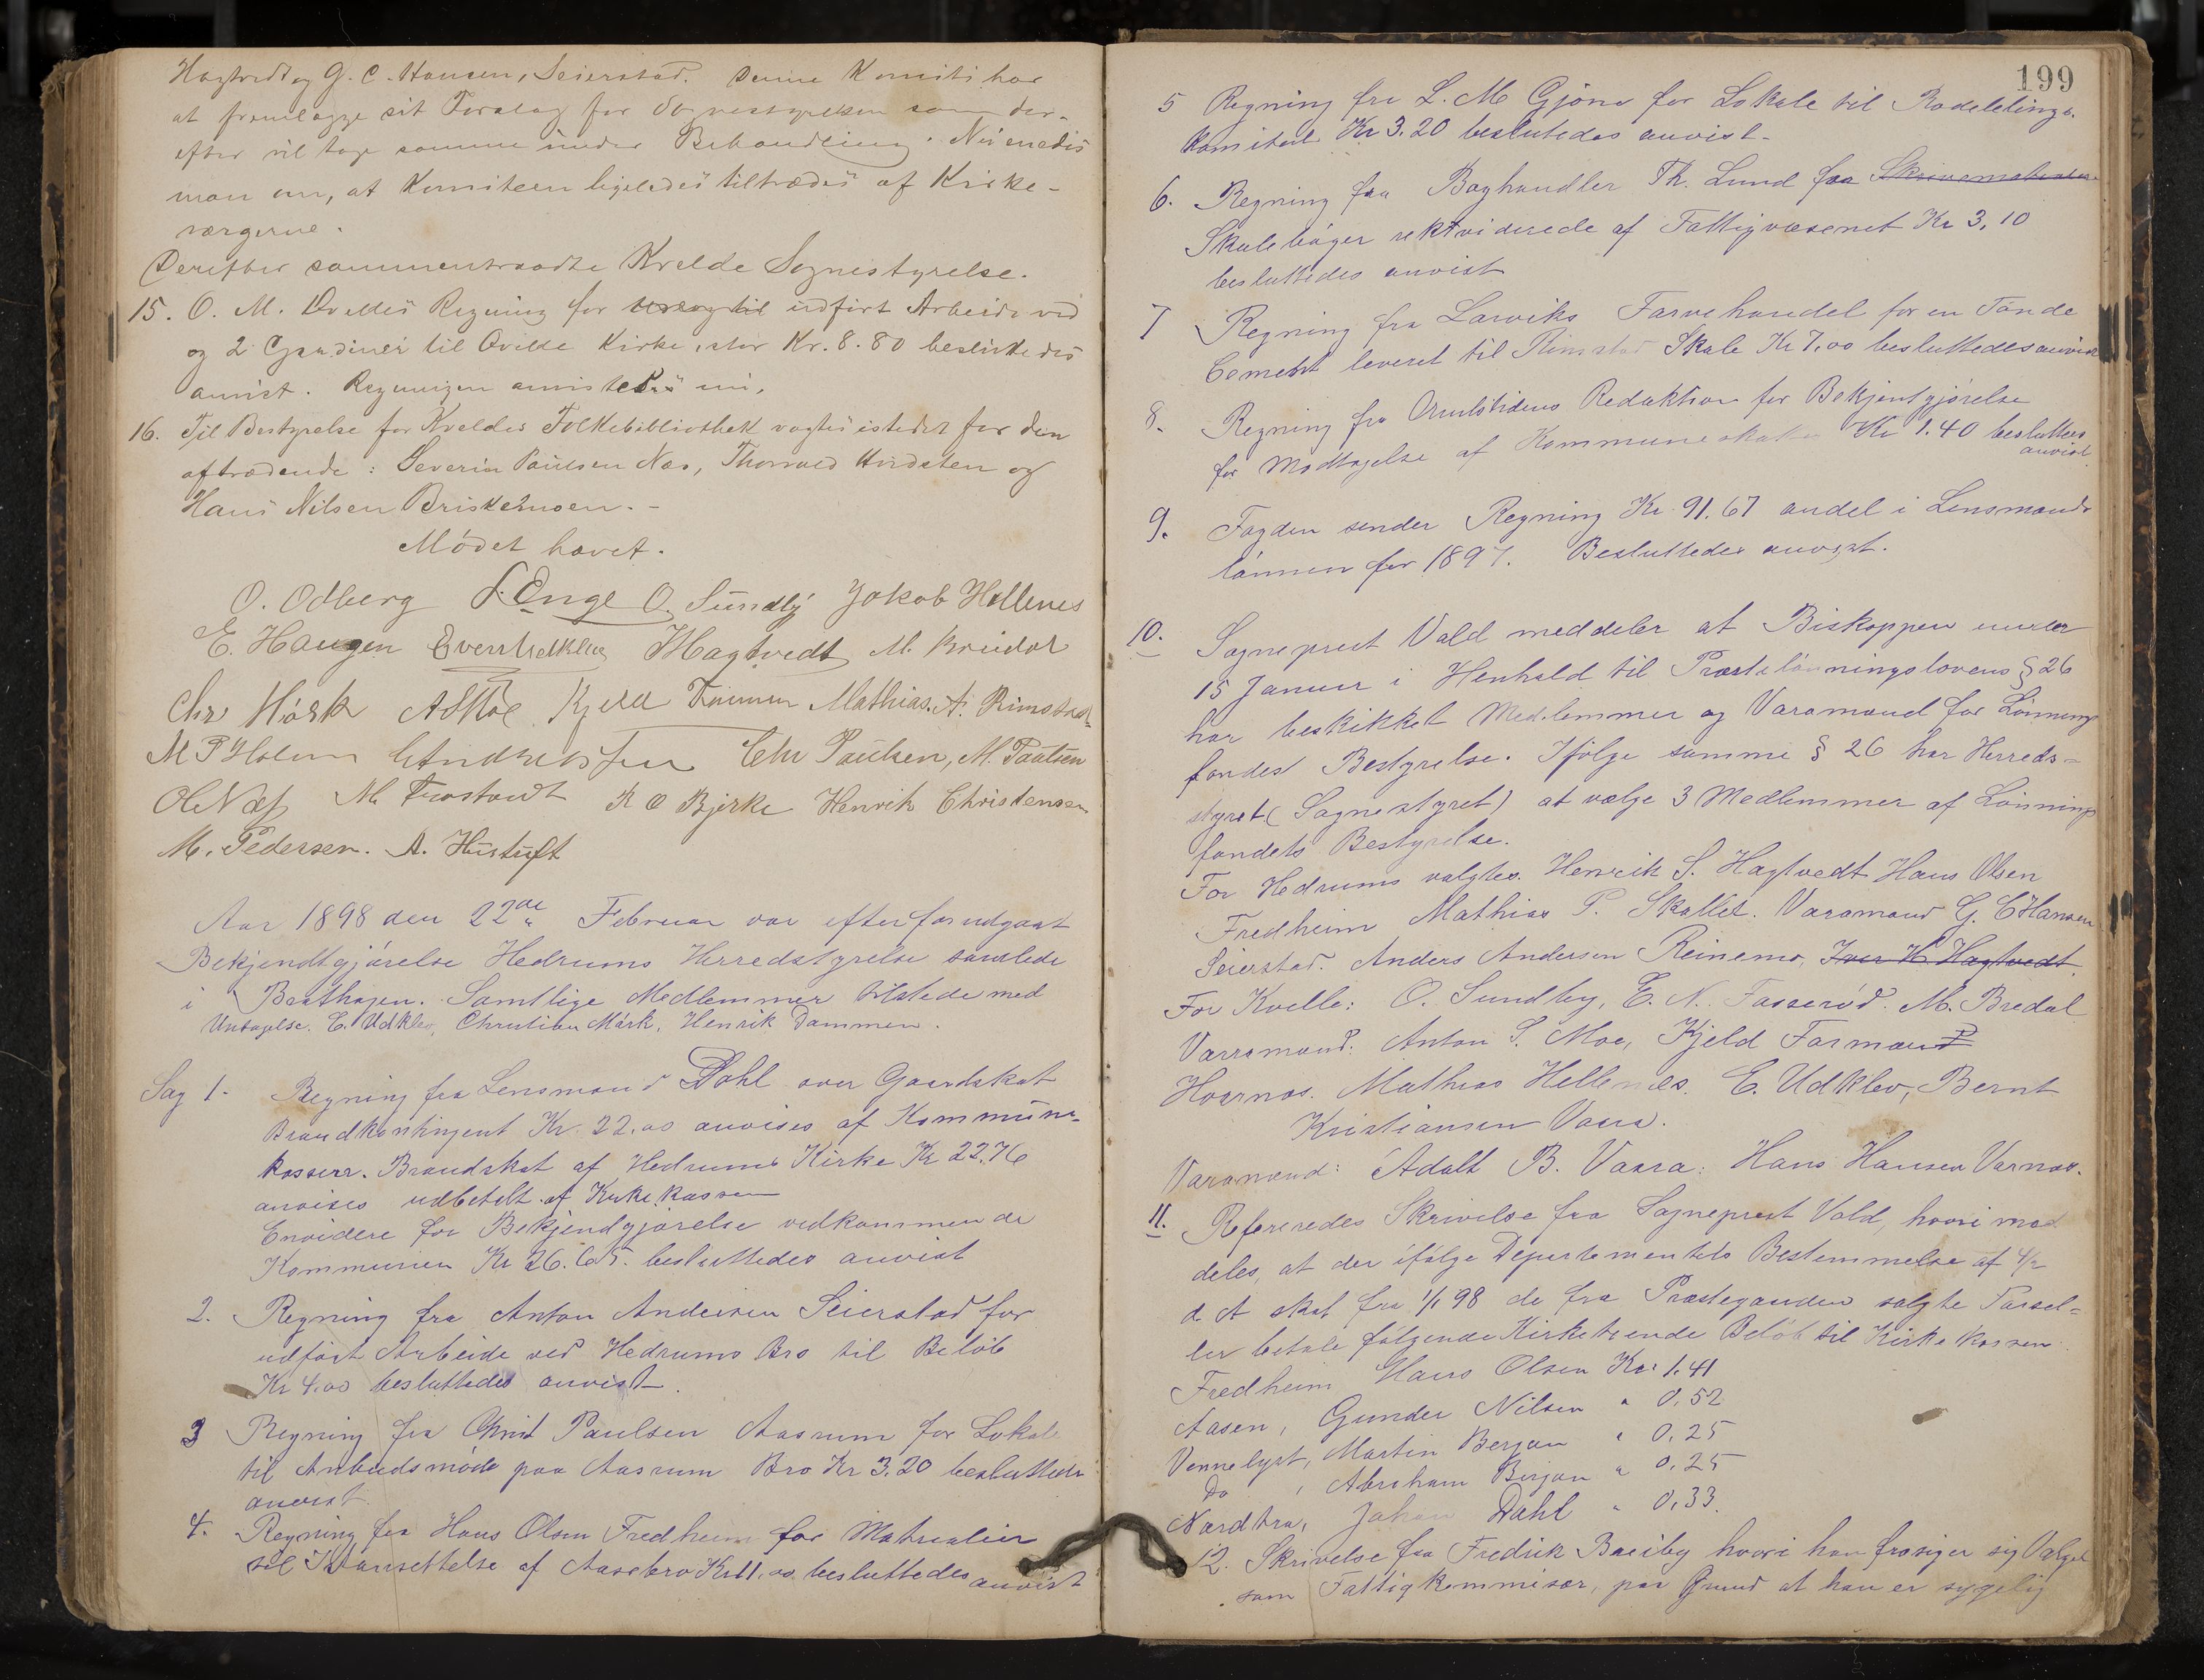 Hagtvedt og G. C. Hansen, Seierstad. Denne Komité har
at fremlægge sit Forslag for Sognestyrelsen som der-
efter vil tage samme under Behandling. Nu enedes
man om, at Komiteen ligeledes tiltrædes af Kirke-
værgerne.
Derefter sammentraadte Kvelde Sognestyrelse.
15. O. M. Regning for udført Arbeide ved
og 2 Gardiner til Qvelde Kirke, stor Kr. 8.80 besluttedes
anvist. Regningen
16. Til Bestyrelse for Kveldes Folkebibliothek valgtes istedet for den
aftrædende: Severin Paulsen Næs, Thorvald Hvidsten og
Hans Nilsen Briskemoen. -
Mødet hævet.
O. Odberg L. Enge O. Sundby Jakob Hellenes
E. Haugen Evert Udklev Hagtvedt M. Breidal
Chr Mörk A S Moe Kjeld Mathias. A. Rimstad
M P Holm C Andresen Chr Paulsen, M. Paulsen
Ole Næs M Trostvedt K O Bjerke Henrik Christensen
M. Pedersen. A. Hustuft
Aar 1898 den 22de Februar var efter forudgaat
Bekjendtgjørelse Hedrums Herredstyrelse samlede
i Bæthagen. Samtlige Medlemmer tilstede med
Untagelse. E. Udklev, Christian Mørk, Henrik Dammen.
Sag 1. Regning fra Lensmand Dahl over Gaardskat
Brandkontingent Kr. 22.00 anvises af Kommune-
kasserer. Brandskat af Hedrums Kirke Kr 22.76
anvises udbetalt af Kirkekassen
Envidere for Bekjendgjørelse vedkommende
Kommunen Kr 26.65. besluttedes anvist
2. Regning fra Anton Andersen Seierstad for
udført Arbeide ved Hedrums Bro til Beløb
Kr 4.00 besluttedes anvist
3 Regning fra Paulsen Aasrum for Lokale
til Anbudsmøde paa Aasrum Bro Kr 3.20 besluttedes
anvist
4. Regning fra Hans Olsen Fredheim for Matrealier
til Istansettelse af Aasebro Kr 11.00 besluttedes anvist
199
5 Regning fra L. M Gjöne for Lokale til Rodelelings-
komiteen Kr 3.20 beslutedes anvist.
6. Regning fra Boghandler Th. Lund for Skrivematerialer
Skolebøger rekvirerede af Fattigvæsenet Kr 3,10
besluttedes anvist
7 Regning fra Larviks Farvehandel for en Tønde
Cement leveret til Rimstad Skole Kr 7.00 besluttedes anvist
8. Regning fra Amtstidens Redaktion for Bekjentgjørelse
for Modtagelse af Kommuneskatten Kr 1.40 besluttes
anvist
9. Fogden sender Regning Kr 91.67 andel i Lensmands
lønnen for 1897. Besluttedes anvist.
10. Sogneprest Vold meddeler at Biskoppen under
15 Januar i Henhold til Præstelønningslovens § 26
har beskikket Medlemmer og Varamænd for Lønnings
fondest Bestyrelse. Ifølge samme § 26 har Herreds-
styret (Sognestyret) at vælge 3 Medlemmer af Lønnings
fondets Bestyrelse.
For Hedrums valgtes. Henrik S. Hagtvedt Hans Olsen
Fredheim Mathias P. Skallet. Varamænd G. C Hansen
Seierstad. Anders Andersen Reinemo, Iver H. Hagtvedt
For Kvelle: O. Sundby, E. N. Fasserød. M. Bredal
Varamænd: Anton S. Moe, Kjeld Farmand
Hvarnæs. Mathias Hellenes. E. Udklev, Bernt
Kristiansen Vaara.
Varamænd: Adolt B. Vaara: Hans Hansen Varnæs.
11. Refereredes Skrivelse fra Sogneprest Vold, hvori med
deles, at der ifølge Departementets Bestemmelse af 4/2
d. A skal fra 1/1 98 de fra Præstegaarden solgte Parsel=
ler betale følgende Kirketiende Beløb til Kirkekassen
Fredheim Hans Olsen Kr: 1.41
Aasen, Gunder Nilsen " 0.52
Vennelyst, Martin Bergan " 0.25
Do , Abraham Bergan " 0.25
Nordtra, Johan Dahl " 0.33.
12. Skrivelse fra Fredrik Braiby hvori han frasiger sig Valget
som Fattigkommisær, paa Grund at han er sygelig